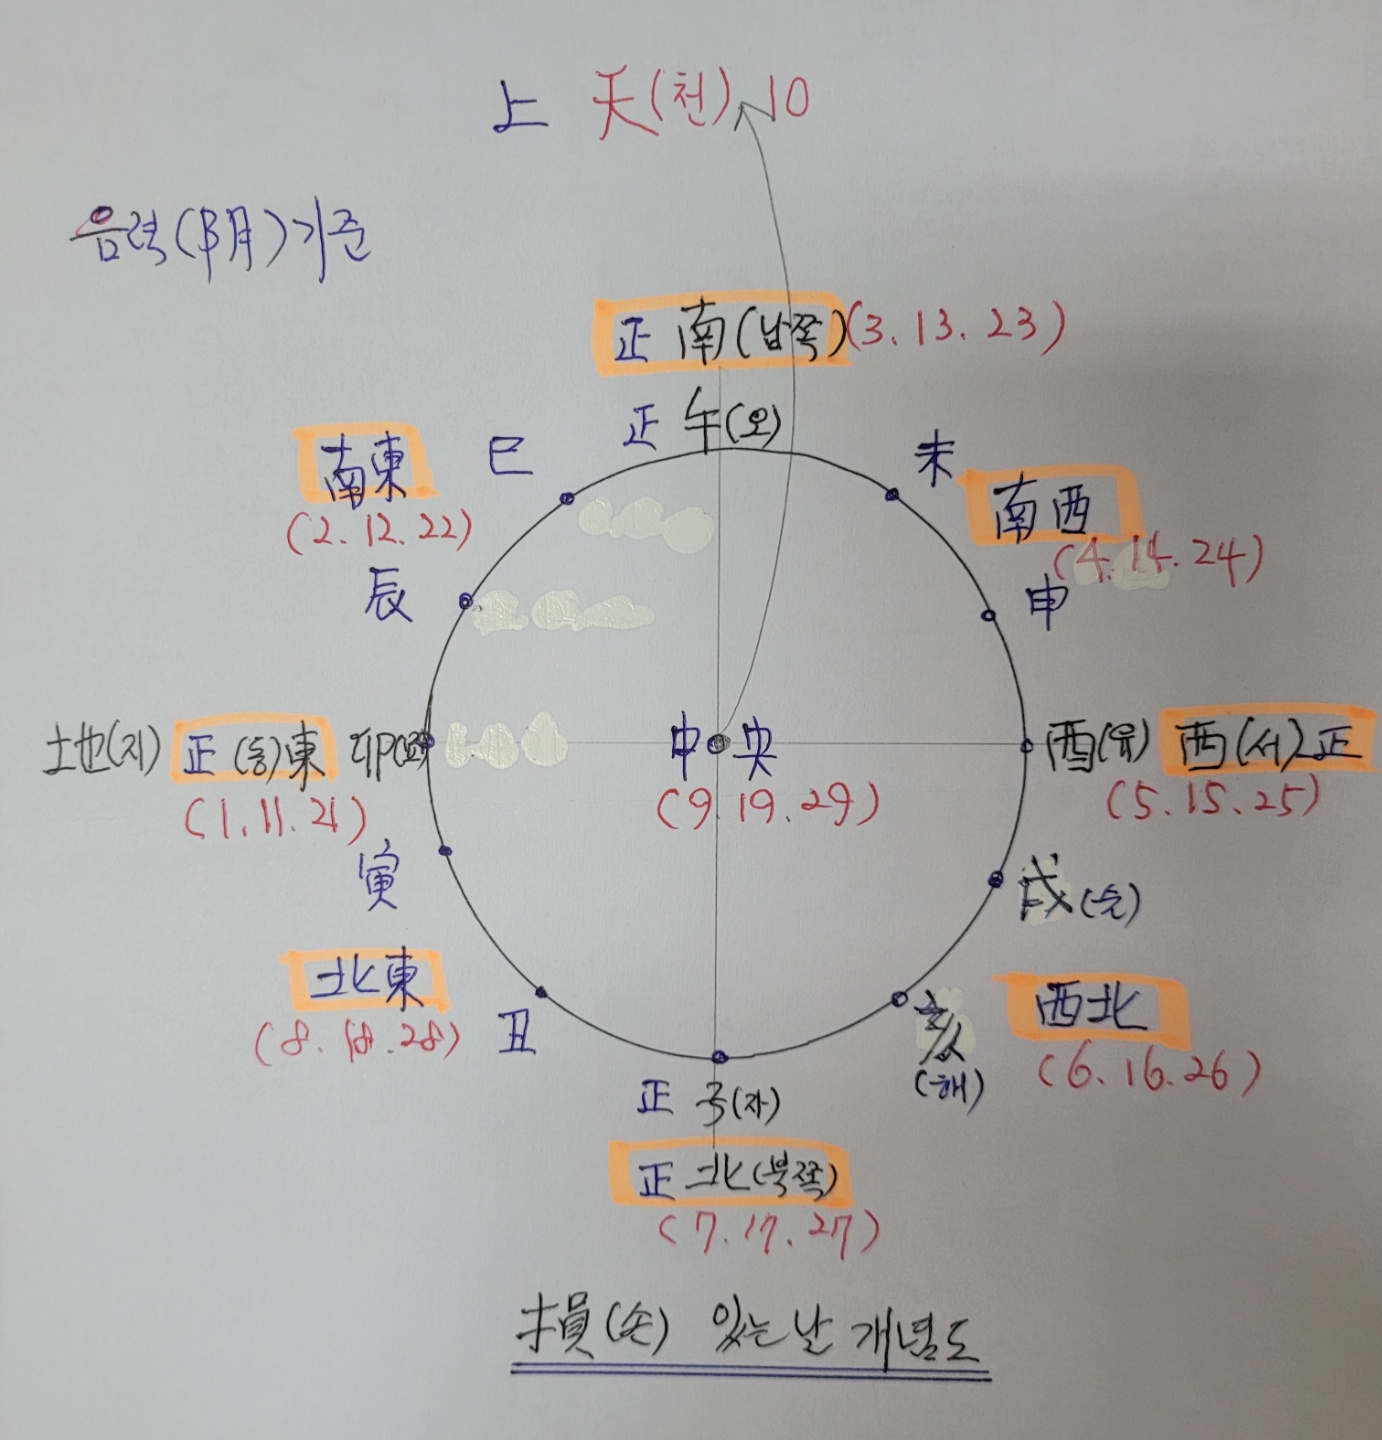 上 天(천) 10
음력(阴月)기준
正 南(남쪽)(3. 13. 23)
正 午(오)
南東 巳
未
南西
(2. 12. 22)
(4. 14. 24)
辰
申
土地(지) 正 (동)東 卯(묘)
中 央
酉(유) 西(서)正
(1. 11. 21)
(9. 19. 29)
(5. 15. 25)
寅
戌(술)
北東
(8. 18. 28)
丑
亥
(해)
西北
(6. 16. 26)
正 子(자)
正 北(북쪽)
(7. 17. 27)
損(손) 있는날 개념도